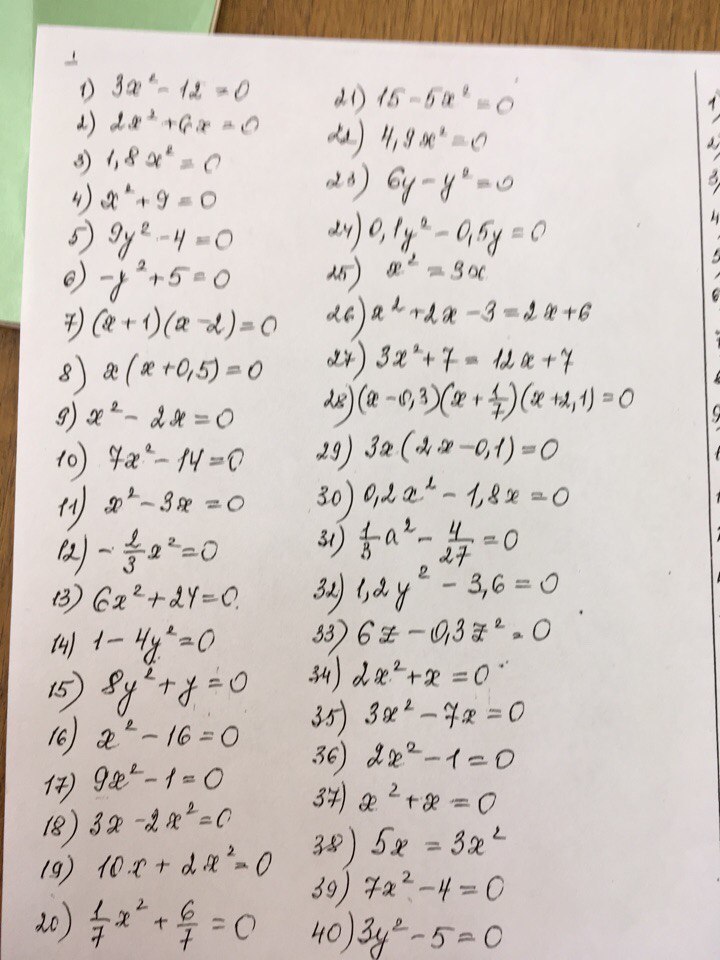 1
1) 3x² - 12 = 0
2) 2x² + 6x = 0
3) 1,8x² = 0
4) x² + 9 = 0
5) 9y² - 4 = 0
6) -y² + 5 = 0
7) (x + 1)(x - 2) = 0
8) x(x + 0,5) = 0
9) x² - 2x = 0
10) 7x² - 14 = 0
11) x² - 3x = 0
12) - 2/3 x² = 0
13) 6x² + 24 = 0
14) 1 - 4y² = 0
15) 8y² + y = 0
16) x² - 16 = 0
17) 9x² - 1 = 0
18) 3x - 2x² = 0
19) 10x + 2x² = 0
20) 1/7 x² + 6/7 = 0
21) 15 - 5x² = 0
22) 4,9x² = 0
23) 6y - y² = 0
24) 0,1y² - 0,5y = 0
25) x² = 3x
26) x² + 2x - 3 = 2x + 6
27) 3x² + 7 = 12x + 7
28) (x - 0,3)(x + 1/7)(x + 2,1) = 0
29) 3x(2x - 0,1) = 0
30) 0,2x² - 1,8x = 0
31) 1/3 a² - 4/27 = 0
32) 1,2y² - 3,6 = 0
33) 6z - 0,3z² = 0
34) 2x² + x = 0
35) 3x² - 7x = 0
36) 2x² - 1 = 0
37) x² + x = 0
38) 5x = 3x²
39) 7x² - 4 = 0
40) 3y² - 5 = 0